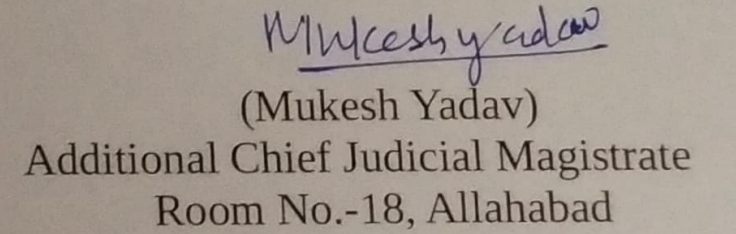 Mukesh yadav
(Mukesh Yadav)
Additional Chief Judicial Magistrate
Room No.-18, Allahabad